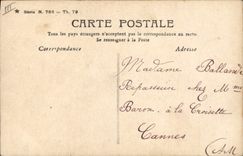 Série N. 786 - Th. 79
CARTE POSTALE
Tous les pays étrangers n'acceptent pas la correspondance au recto
Se renseigner à la Poste
Correspondance
Adresse
Madame Balland
Repasseuse chez Mme
Baron, à la Croisette
Cannes
(A.M